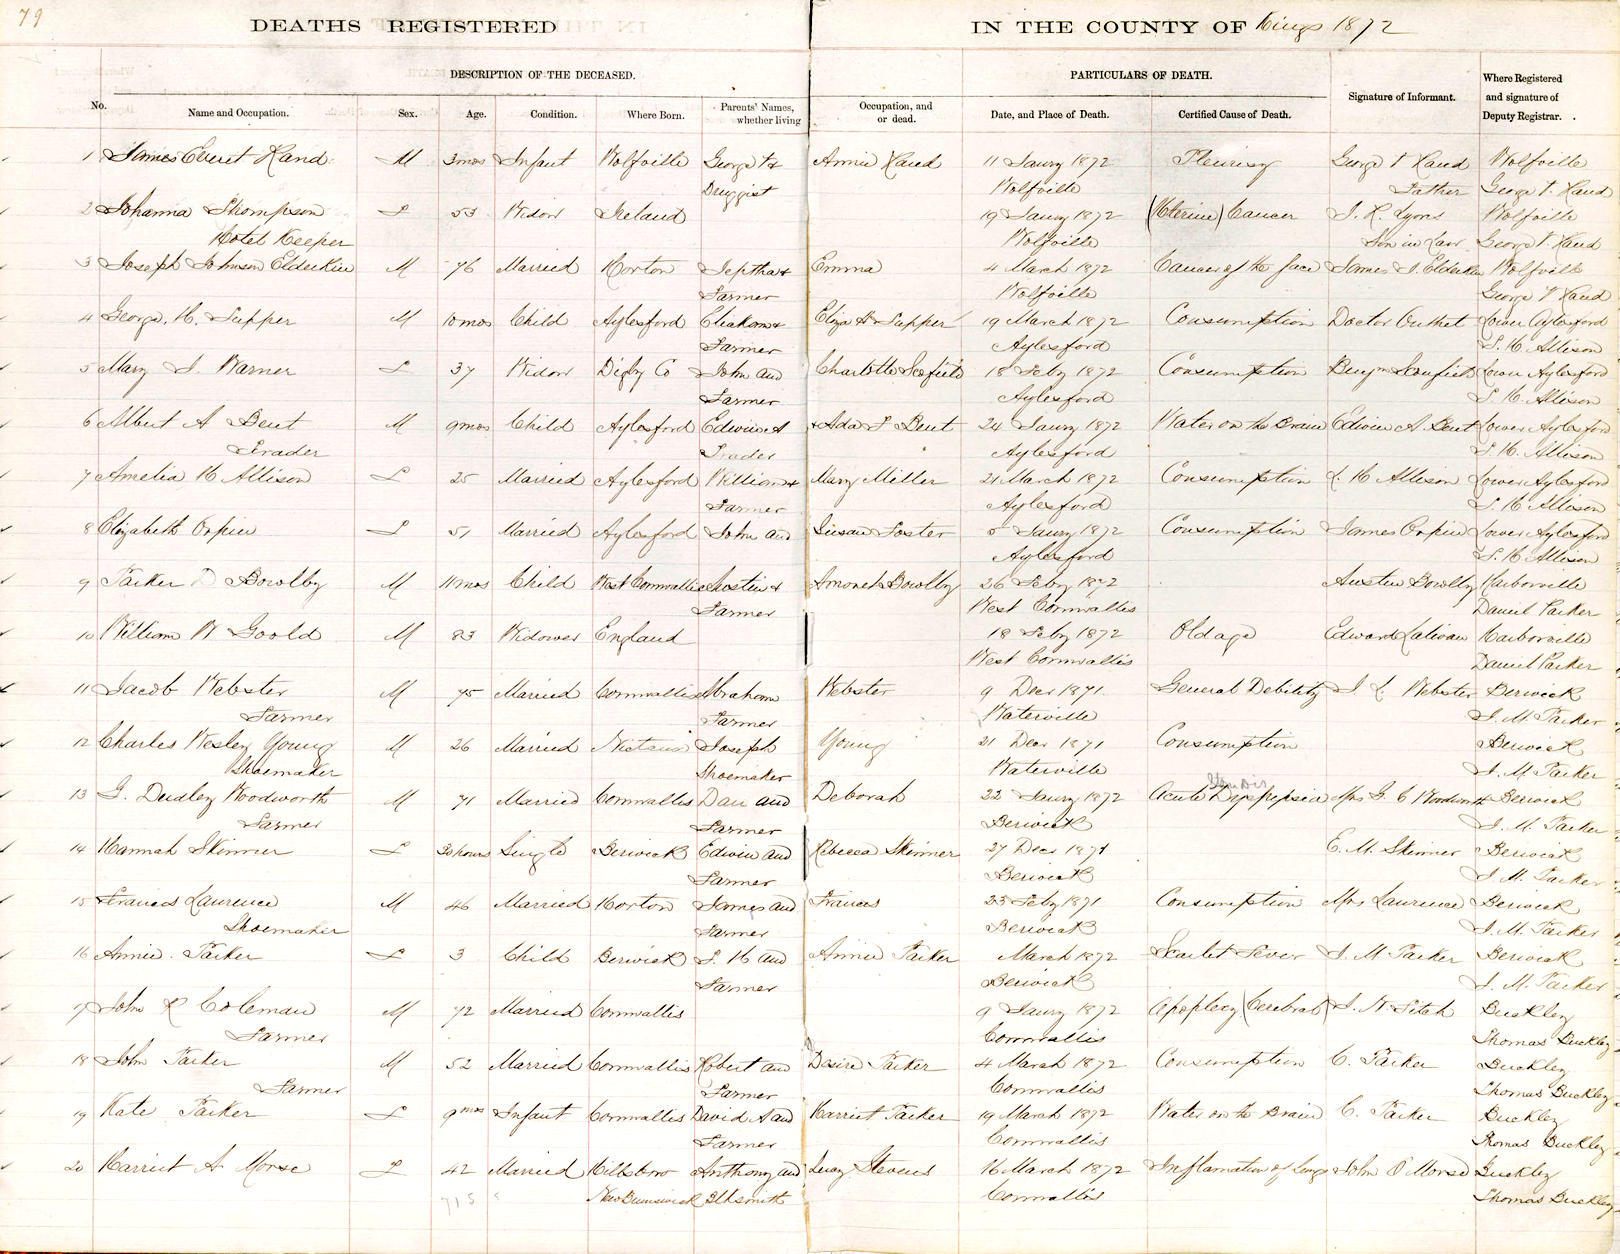 79
DEATHS REGISTERED IN THE COUNTY OF Kings 1872
DESCRIPTION OF THE DECEASED. PARTICULARS OF DEATH.
No. Name and Occupation. Sex. Age. Condition. Where Born. Parents' Names, whether living Occupation, and or dead. Date, and Place of Death. Certified Cause of Death. Signature of Informant. Where Registered and signature of Deputy Registrar.
1 James Everet Rand M 3 mos Infant Wolfville George V & Annie Rand 11 Jany 1872 Pleurisy George V Rand Wolfville
Druggist Wolfville Father George V. Rand
2 Johanna Thompson F 53 Widow Ireland 19 Jany 1872 (Uterine) Cancer J. R. Lyons Wolfville
Hotel Keeper Wolfville Son in Law George V. Rand
3 Joseph Johnson Elderkin M 76 Married Horton Jeptha & Emma 4 March 1872 Cancer of the face James S. Elderkin Wolfville
Farmer Wolfville George V Rand
4 George. H. Tupper M 10 mos Child Aylesford Eliakim & Eliza A Tupper 19 March 1872 Consumption Doctor Outhet Lower Aylesford
Farmer Aylesford L. H. Allison
5 Mary J. Warner F 37 Widow Digby Co John and Charlotte Scofield 18 Feby 1872 Consumption Benjn Scofield Lower Aylesford
Farmer Aylesford L. H. Allison
6 Albert A Bent M 9 mos Child Aylesford Edwin A & Ada F Bent 24 Jany 1872 Water on the Brain Edwin A. Bent Lower Aylesford
Trader Trader Aylesford L. H. Allison
7 Amelia H Allison F 25 Married Aylesford William & Mary Miller 21 March 1872 Consumption L. H Allison Lower Aylesford
Farmer Aylesford L. H Allison
8 Elizabeth Orpin F 51 Married Aylesford John and Susan Foster 5 Jany 1872 Consumption James Orpin Lower Aylesford
Aylesford L. H Allison
9 Parker D Bowlby M 11 mos Child West Cornwallis Austin & Bowlby 26 Feby 1872 Austin Bowlby Harborville
Farmer West Cornwallis Daniel Parker
10 William W Goold M 83 Widower England 18 Feby 1872 Old age Edward Harborville
West Cornwallis Daniel Parker
11 Jacob Webster M 75 Married Cornwallis Abraham Webster 9 Decr 1871 General Debility J. L. Webster Berwick
Farmer Farmer Waterville J. M. Parker
12 Charles Wesley Young M 26 Married Nictaux Joseph Young 21 Decr 1871 Consumption Berwick
Shoemaker Shoemaker Waterville J. M Parker
13 G. Dudley Woodworth M 71 Married Cornwallis Dan and Deborah 22 Jany 1872 Acute Dyspepsia Mrs G. C Woodworth Berwick
Farmer Farmer Berwick J. M. Parker
14 Hannah Skinner F 30 hours Single Berwick Edwin and Rebecca Skinner 27 Decr 1871 E. M. Skinner Berwick
Farmer Berwick J. M. Parker
15 Francis Laurence M 46 Married Horton James and Frances 25 Feby 1871 Consumption Mrs Laurence Berwick
Shoemaker Farmer Berwick J. M. Parker
16 Annie. Parker F 3 Child Berwick S. H and Annie Parker March 1872 Scarlet Fever J. M Parker Berwick
Farmer Berwick J. M. Parker
17 John R Coleman M 72 Married Cornwallis 9 Jany 1872 Apoplexy (Cerebral) J. N. Fitch Buckley
Farmer Cornwallis Thomas Buckley
18 John Parker M 52 Married Cornwallis Robert and Desire Parker 4 March 1872 Consumption C. Parker Buckley
Farmer Farmer Cornwallis Thomas Buckley
19 Kate Parker F 9 mos Infant Cornwallis David A and Harriet Parker 19 March 1872 Water on the Brain C. Parker Buckley
Farmer Cornwallis Thomas Buckley
20 Harriet A Morse F 42 Married Hillsboro Anthony and Lucy Stevens 16 March 1872 Inflamation of Lungs John O Morse Buckley
715 New Brunswick Blksmith Cornwallis Thomas Buckley